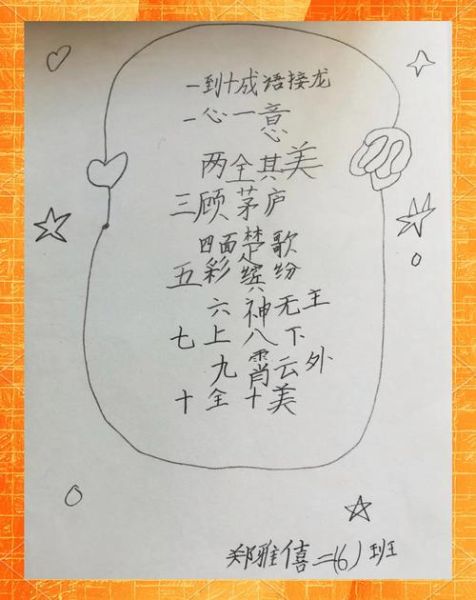 一到十成语接龙
一心一意
两全其美
三顾茅庐
四面楚歌
五彩缤纷
六神无主
七上八下
九霄云外
十全十美
郑雅僖二(6)班